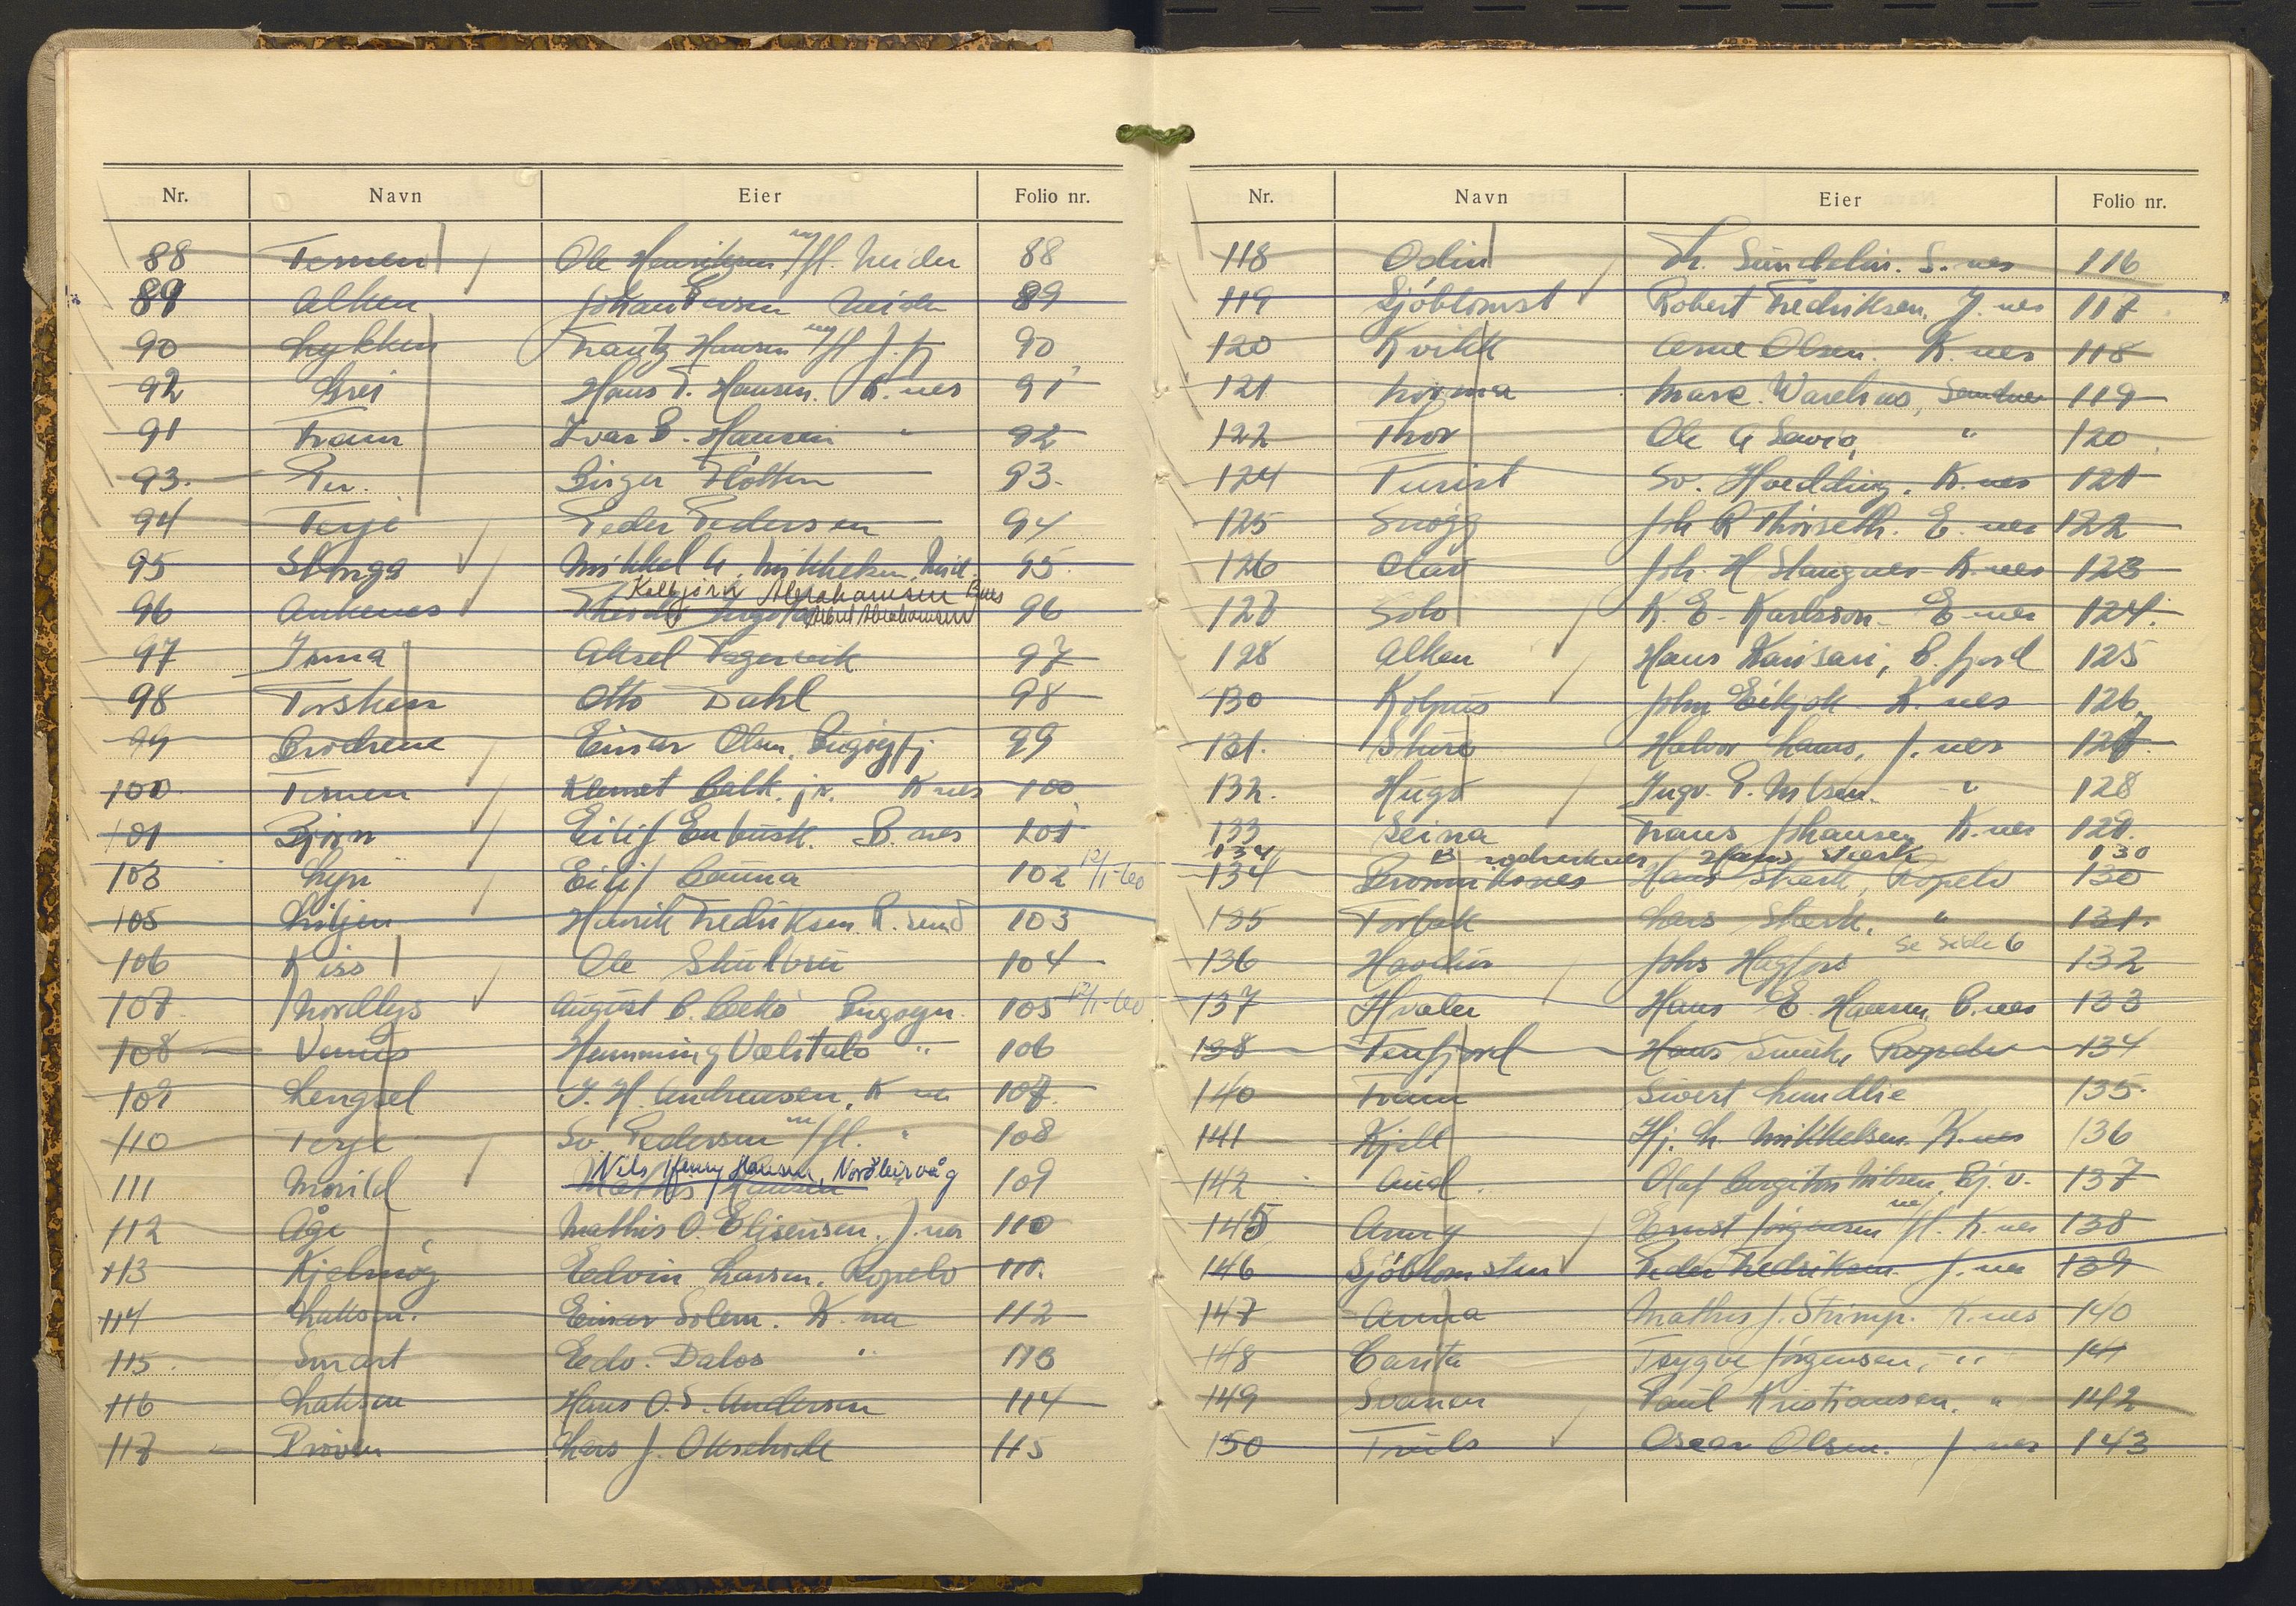 Nr. Navn Eier Folio nr.
88 Ternen Ole Henriksen m/fl. Neiden 88
89 Alken Johan Persen Neiden 89
90 Lykken Frantz Hansen m/fl J. fj 90
92 Grei Hans P. Hansen. K.nes 91
91 Fram Ivar B. Hansen " 92
93. Per. Birger Flötten 93.
94 Terje Peder Pedersen 94
95 Stinga Mikkel A. Mikkelsen, Neid 95.
Kolbjörn Abrahamsen Bnes
96 Ankenes Albert Abrahamsen 96
97 Irma Aksel Fagervik 97
98 Torsken Otto Dahl 98
99 Brödrene Einar Olsen, Bugöyfj 99
100 Ternen Klemet Balk. jr. K nes 100
101 Björn Eilif Enbusk. B. nes 101
103 Lyn Eilif Banna 102 12/1-60
105 Liljen Henrik Fredriksen R. sund 103
106 Kiss Ole Skulbru 104
107 Nordlys August B. Beko Bugöyn. 105 12/1-60
108 Venus Hemming Valitalo " 106
109 Lengsel J. H. Andreassen, K nes 107.
110 Terje Sv. Pedersen m/fl. " 108
Nils Henry Hansen, Nordleirvåg
111 Morild Mathis Hansen 109
112 Åge Mathis O. Elisensen. J. nes 110
113 Kjelmöy Edvin Larsen. Ropelv 111.
114 Laksen. Einar Solem. K. nes 112
115. Smart Edv. Dalos " 113
116 Laksen Hans O. S. Andersen 114
117 Pröven Lars J. 115
Nr. Navn Eier Folio nr.
118 Odin Th. Sundelin. S. nes 116
119 Sjöblomst Robert Fredriksen. J. nes 117
120 Kvikk Arne Olsen. K. nes 118
121 Norma Mare. Warelius, Sandnes 119
122 Thor Ole A Savio, " 120
124 Turist Sv. Hoedding. K. nes 121
125 Snögg Joh R Thorseth. E. nes 122
126 Olav Joh. H Stangnes K. nes 123
127 Solo K. E. Karlsson E. nes 124.
128 Alken Hans Karisari, B. fjord 125
130 Kolpus John Eikjok K. nes 126
131. Skure Halvor Laus, J. nes 127.
132. Hugo Ingv. P. Nilsen. " 128
133 Leina Frans Johansen K. nes 129.
134 Hans Sterk 130
134 Hans Sterk, Ropelv 130
135 Torbak Lars Sterk. " 131.
se side 6
136 Havdur Johs Hagfors 132
137 Hvalen Hans E. Hansen, B. nes 133
138 Tenfjord Hans Smuk, Ropelv 134
140 Fram Sivert Lundlie 135.
141 Kjell Hj. L. Mikkelsen K. nes 136
142 Aud. Olaf Bergiton Nilsen. Bj. v. 137
145 Anny Ernst Jörgensen m/fl. K. nes 138
146 Sjöblomsten Peder Fredriksen J. nes 139
147 Anna Mathis J. Strimp. K. nes 140
148 Carita Trygve Jörgensen, " 141
149 Svanen Paul Kristiansen. " 142
150 Truls Oscar Olsen. J. nes 143